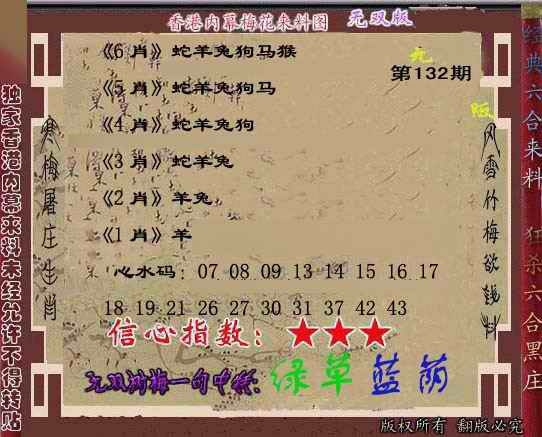 香港内幕梅花来料图 无双版
《6 肖》蛇羊兔狗马猴
无
第132期
《5 肖》蛇羊兔狗马
版
《4 肖》蛇羊兔狗
《3 肖》蛇羊兔
《2 肖》羊兔
《1 肖》羊
心水码：07 08 09 13 14 15 16 17
18 19 21 26 27 30 31 37 42 43
信心指数：★★★
无双 梅一句中特：绿草蓝荫
版权所有 翻版必究
独家香港内幕来料未经允许不得转贴
寒梅屠庄生肖
风雪竹梅欲钱料
经典六合来料 狂杀六合黑庄